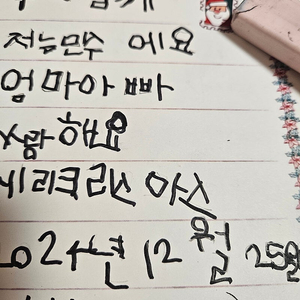 저는만수 에요
엄마아빠
사람해요
리크리스 마스
024년 12월 25일